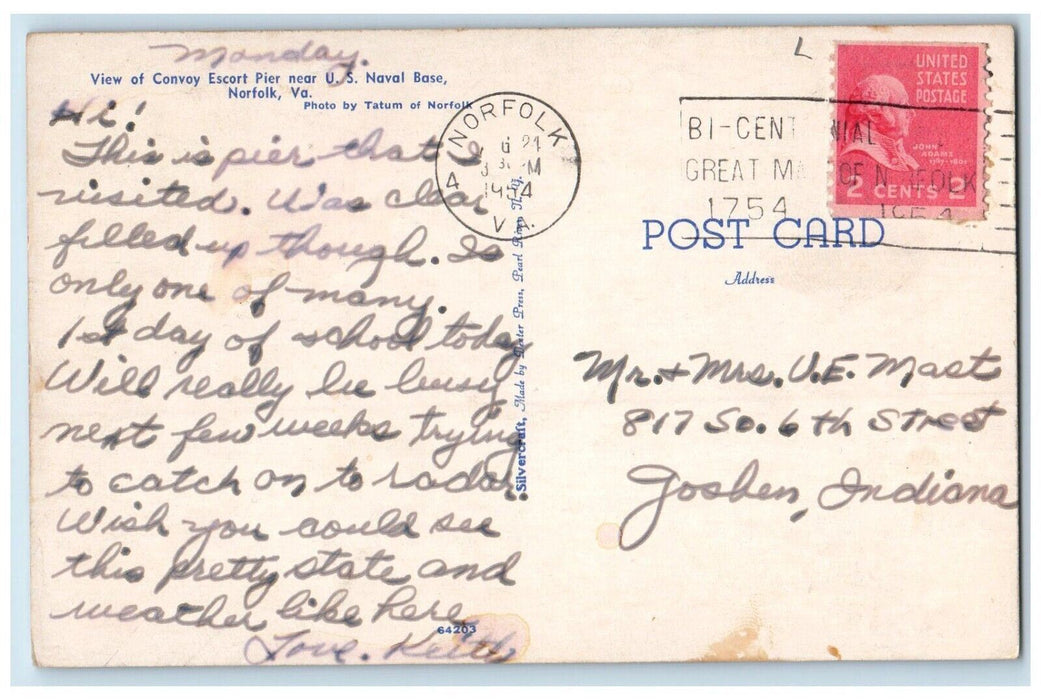 Monday.
View of Convoy Escort Pier near U. S. Naval Base,
Norfolk, Va.
Photo by Tatum of Norfolk
Hi!
This is pier that I
visited. Was clear
filled up though. Is
only one of many.
1st day of school today
Will really be busy
next few weeks trying
to catch on to radar.
Wish you could see
this pretty state and
weather like here
Love. Keith
64203
Silvercraft, Made by Dexter Press, Pearl River, N. Y.
NORFOLK
4
24
M
1954
VA.
BI-CENTENNIAL
GREAT
OF NORFOLK
1754
UNITED
STATES
POSTAGE
JOHN
ADAMS
1797-1801
2 CENTS 2
POST CARD
Address
Mr. + Mrs. V. E. Mast
817 So. 6th Street
Goshen, Indiana